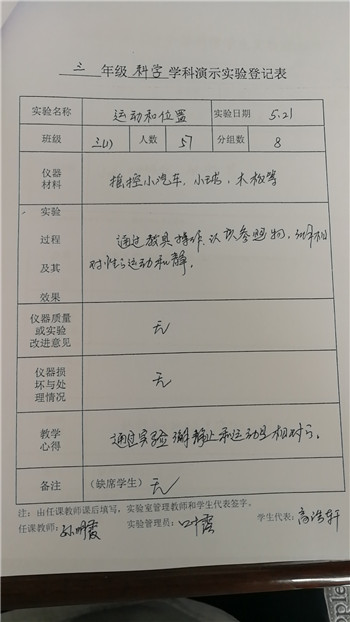 三 年级 科学 学科演示实验登记表
实验名称 运动和位置 实验日期 5.21
班级 三(1) 人数 57 分组数 8
仪器
材料 摇控小汽车、小球、木板等
实验
过程 通过教具操作、认识参照物,
及其 对性的运动和静。
效果
仪器质量
或实验
改进意见 无
仪器损
坏与处
理情况 无
教学
心得 通过实验 静止和运动是相对的。
备注 (缺席学生) 无
注:由任课教师课后填写,实验室管理教师和学生代表签字。
任课教师: 孙明霞 实验管理员: 叶霞 学生代表: 高浩轩